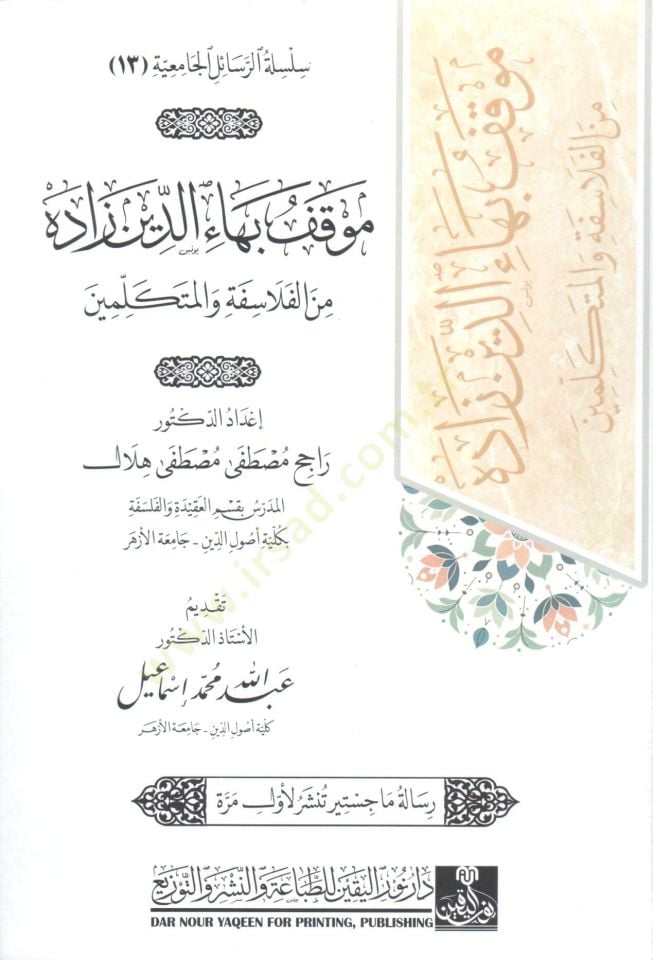 سلسلة الرسائل الجامعية (١٣)
موقف بهاء الدين زاده
من الفلاسفة والمتكلمين
إعداد الدكتور
راجح مصطفى مصطفى هلال
المدرس بقسم العقيدة والفلسفة
بكلية أصول الدين - جامعة الأزهر
تقديم
الأستاذ الدكتور
عبد الله محمد إسماعيل
كلية أصول الدين - جامعة الأزهر
رسالة ماجستير تنشر لأول مرة
دار نور اليقين للطباعة والنشر والتوزيع
DAR NOUR YAQEEN FOR PRINTING, PUBLISHING
نور اليقين
موقف بهاء الدين زاده
من الفلاسفة والمتكلمين
www.irsad.com.tr